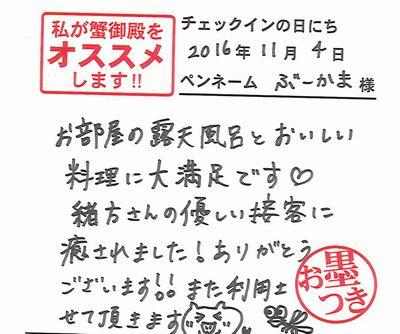 私が蟹御殿を
オススメ
します!!
チェックインの日にち
2016年 11月 4日
ペンネーム ぶーかま 様
お部屋の露天風呂とおいしい
料理に大満足です♡
緒方さんの優しい接客に
癒されました!ありがとう
ございます!!また利用さ
せて頂きます
お墨つき